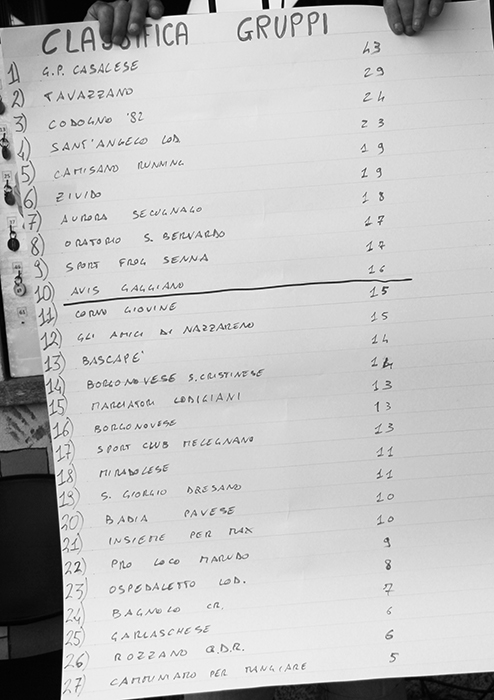 CLASSIFICA GRUPPI
1) G.P. CASALESE 43
2) TAVAZZANO 29
3) CODOGNO '82 24
4) SANT'ANGELO LOD. 23
5) CAMISANO RUNNING 19
6) ZIVIDO 19
7) AURORA SECUGNAGO 18
8) ORATORIO S. BERNARDO 17
9) SPORT FROG SENNA 17
10) AVIS GAGGIANO 16
11) CORNO GIOVINE 15
12) GLI AMICI DI NAZZARENO 15
13) BASCAPE' 14
14) BORGONOVESE S. CRISTINESE 14
15) MARCIATORI LODIGIANI 13
16) BORGONOVESE 13
17) SPORT CLUB MELEGNANO 13
18) MIRADOLESE 11
19) S. GIORGIO DRESANO 11
20) BADIA PAVESE 10
21) INSIEME PER MAX 10
22) PRO LOCO MARUDO 9
23) OSPEDALETTO LOD. 8
24) BAGNOLO CR. 7
25) GARLASCHESE 6
26) ROZZANO Q.D.R. 6
27) CAMMINIAMO PER MANGIARE 5